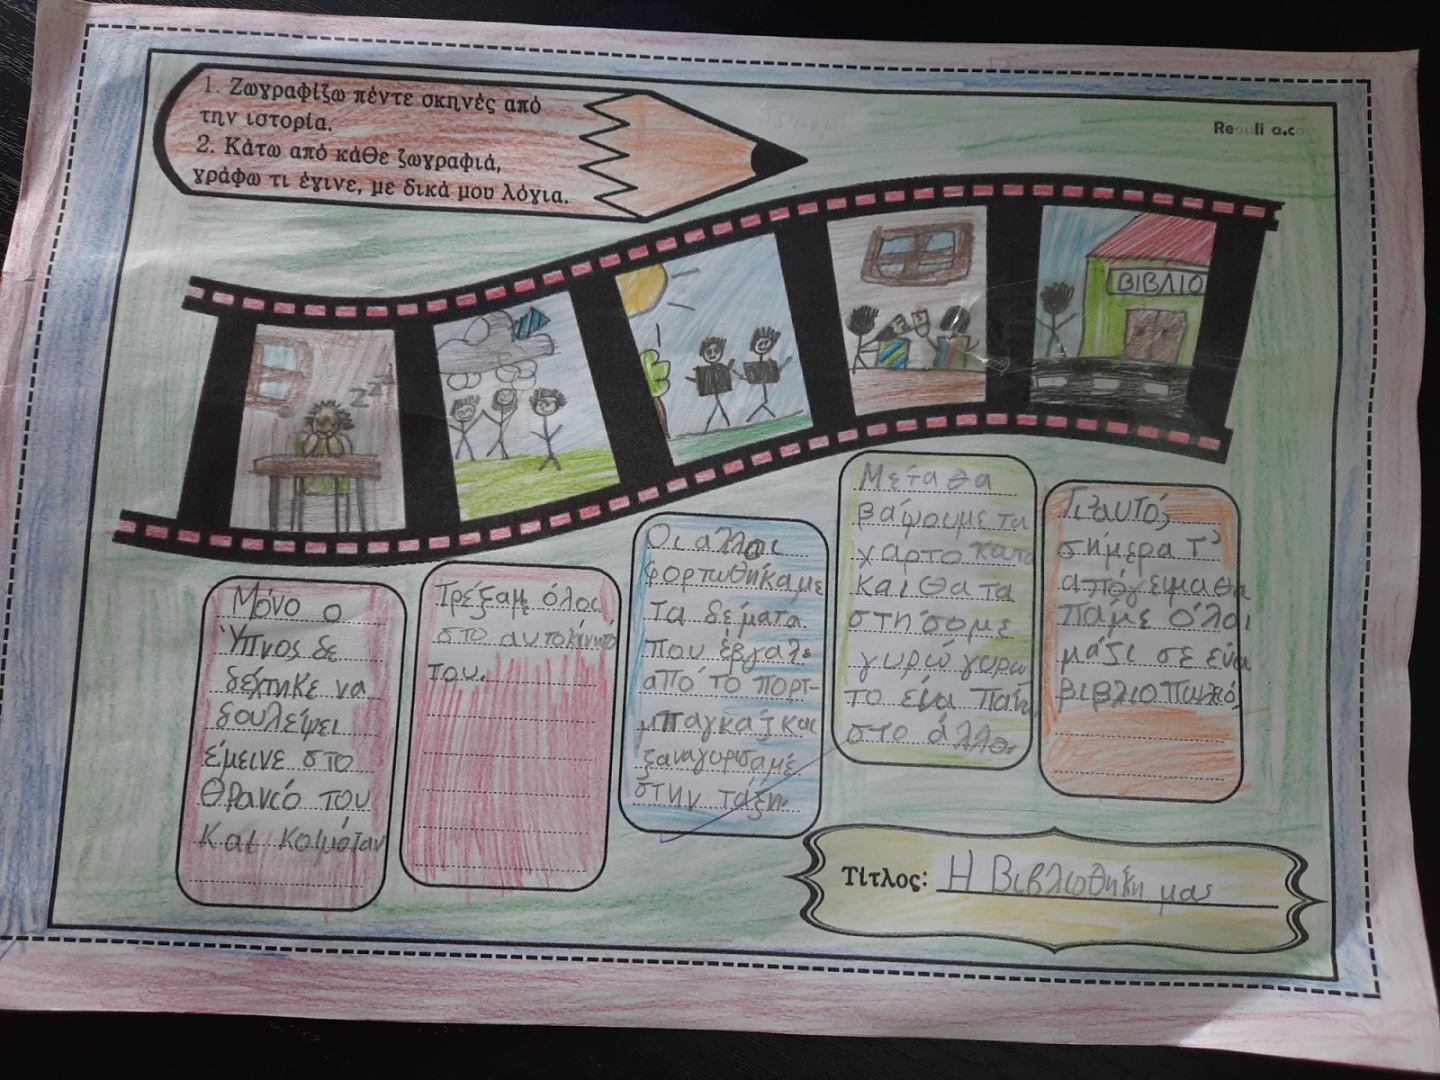 1. Ζωγραφίζω πέντε σκηνές από
την ιστορία.
2. Κάτω από κάθε ζωγραφιά,
γράφω τι έγινε, με δικά μου λόγια.
ΒΙΒΛΙΟ
zzz
Μόνο ο
Ύπνος δε
δέχτηκε να
δουλέψει
έμεινε στο
Θρανίο του
και κοιμόταν
Τρέξαμε όλοι
στο αυτοκίνητό
του.
Οι αλλοι
φορτωθήκαμε
τα δέματα
που έβγαλε
από το πορτ-
μπαγκαζ και
ξαναγυρίσαμε
στην τάξη.
Μετά θα
βάψουμε τα
χαρτοκατα
και θα τα
στήσομε
γυρώ γυρω
το ένα πάνω
στο άλλο.
Γι'αυτό,
σήμερα τ'
απόγευμα θα
πάμε όλοι
μάζι σε ένα
βιβλιοπωλιό,
Τίτλος: Η Βιβλιοθήκη μας